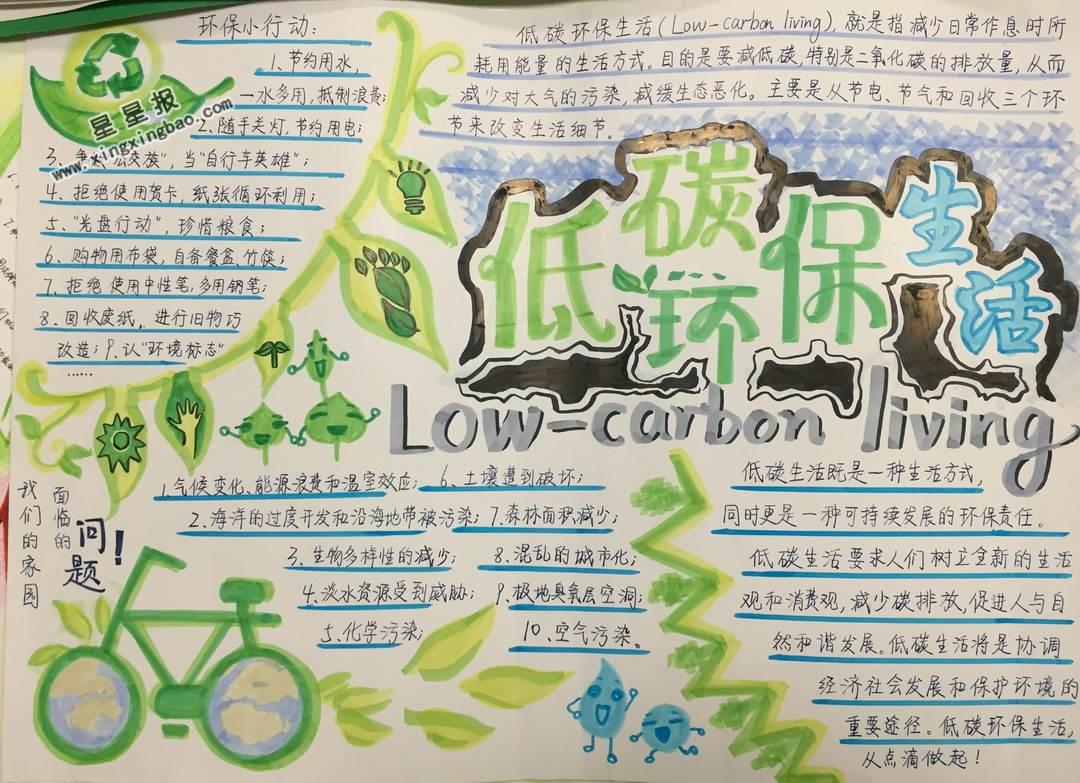 环保小行动：
1、节约用水，
一水多用，抵制浪费；
2、随手关灯，节约用电；
3、
公交族"，当"自行车英雄"；
4、拒绝使用贺卡，纸张循环利用；
5、"光盘行动"，珍惜粮食；
6、购物用布袋，自备餐盒竹筷；
7、拒绝使用中性笔，多用钢笔；
8、回收废纸，进行旧物巧
改造；9、认"环境标志"
……
星星报
www.xingxingbao.com
低碳环保生活(Low-carbon living)，就是指减少日常作息时所
耗用能量的生活方式。目的是要减低碳，特别是二氧化碳的排放量，从而
减少对大气的污染，减缓生态恶化。主要是从节电、节气和回收三个环
节来改变生活细节。
低碳环保生活
Low-carbon living
我们的家园
面临的
问题！
1.气候变化、能源浪费和温室效应；
2、海洋的过度开发和沿海地带被污染；
3、生物多样性的减少；
4、淡水资源受到威胁；
5、化学污染；
6、土壤遭到破坏；
7、森林面积减少；
8、混乱的城市化；
9、极地臭氧层空洞；
10、空气污染。
低碳生活既是一种生活方式，
同时更是一种可持续发展的环保责任。
低碳生活要求人们树立全新的生活
观和消费观，减少碳排放，促进人与自
然和谐发展。低碳生活将是协调
经济社会发展和保护环境的
重要途径。低碳环保生活，
从点滴做起！